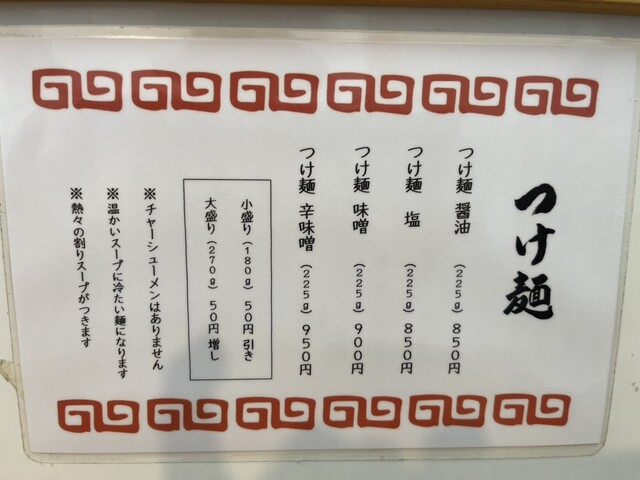 つけ麺
つけ麺 醤油 (225g) 850円
つけ麺 塩 (225g) 850円
つけ麺 味噌 (225g) 900円
つけ麺 辛味噌 (225g) 950円
小盛り(180g) 50円 引き
大盛り(270g) 50円 増し
※チャーシューメンはありません
※温かいスープに冷たい麺になります
※熱々の割りスープがつきます